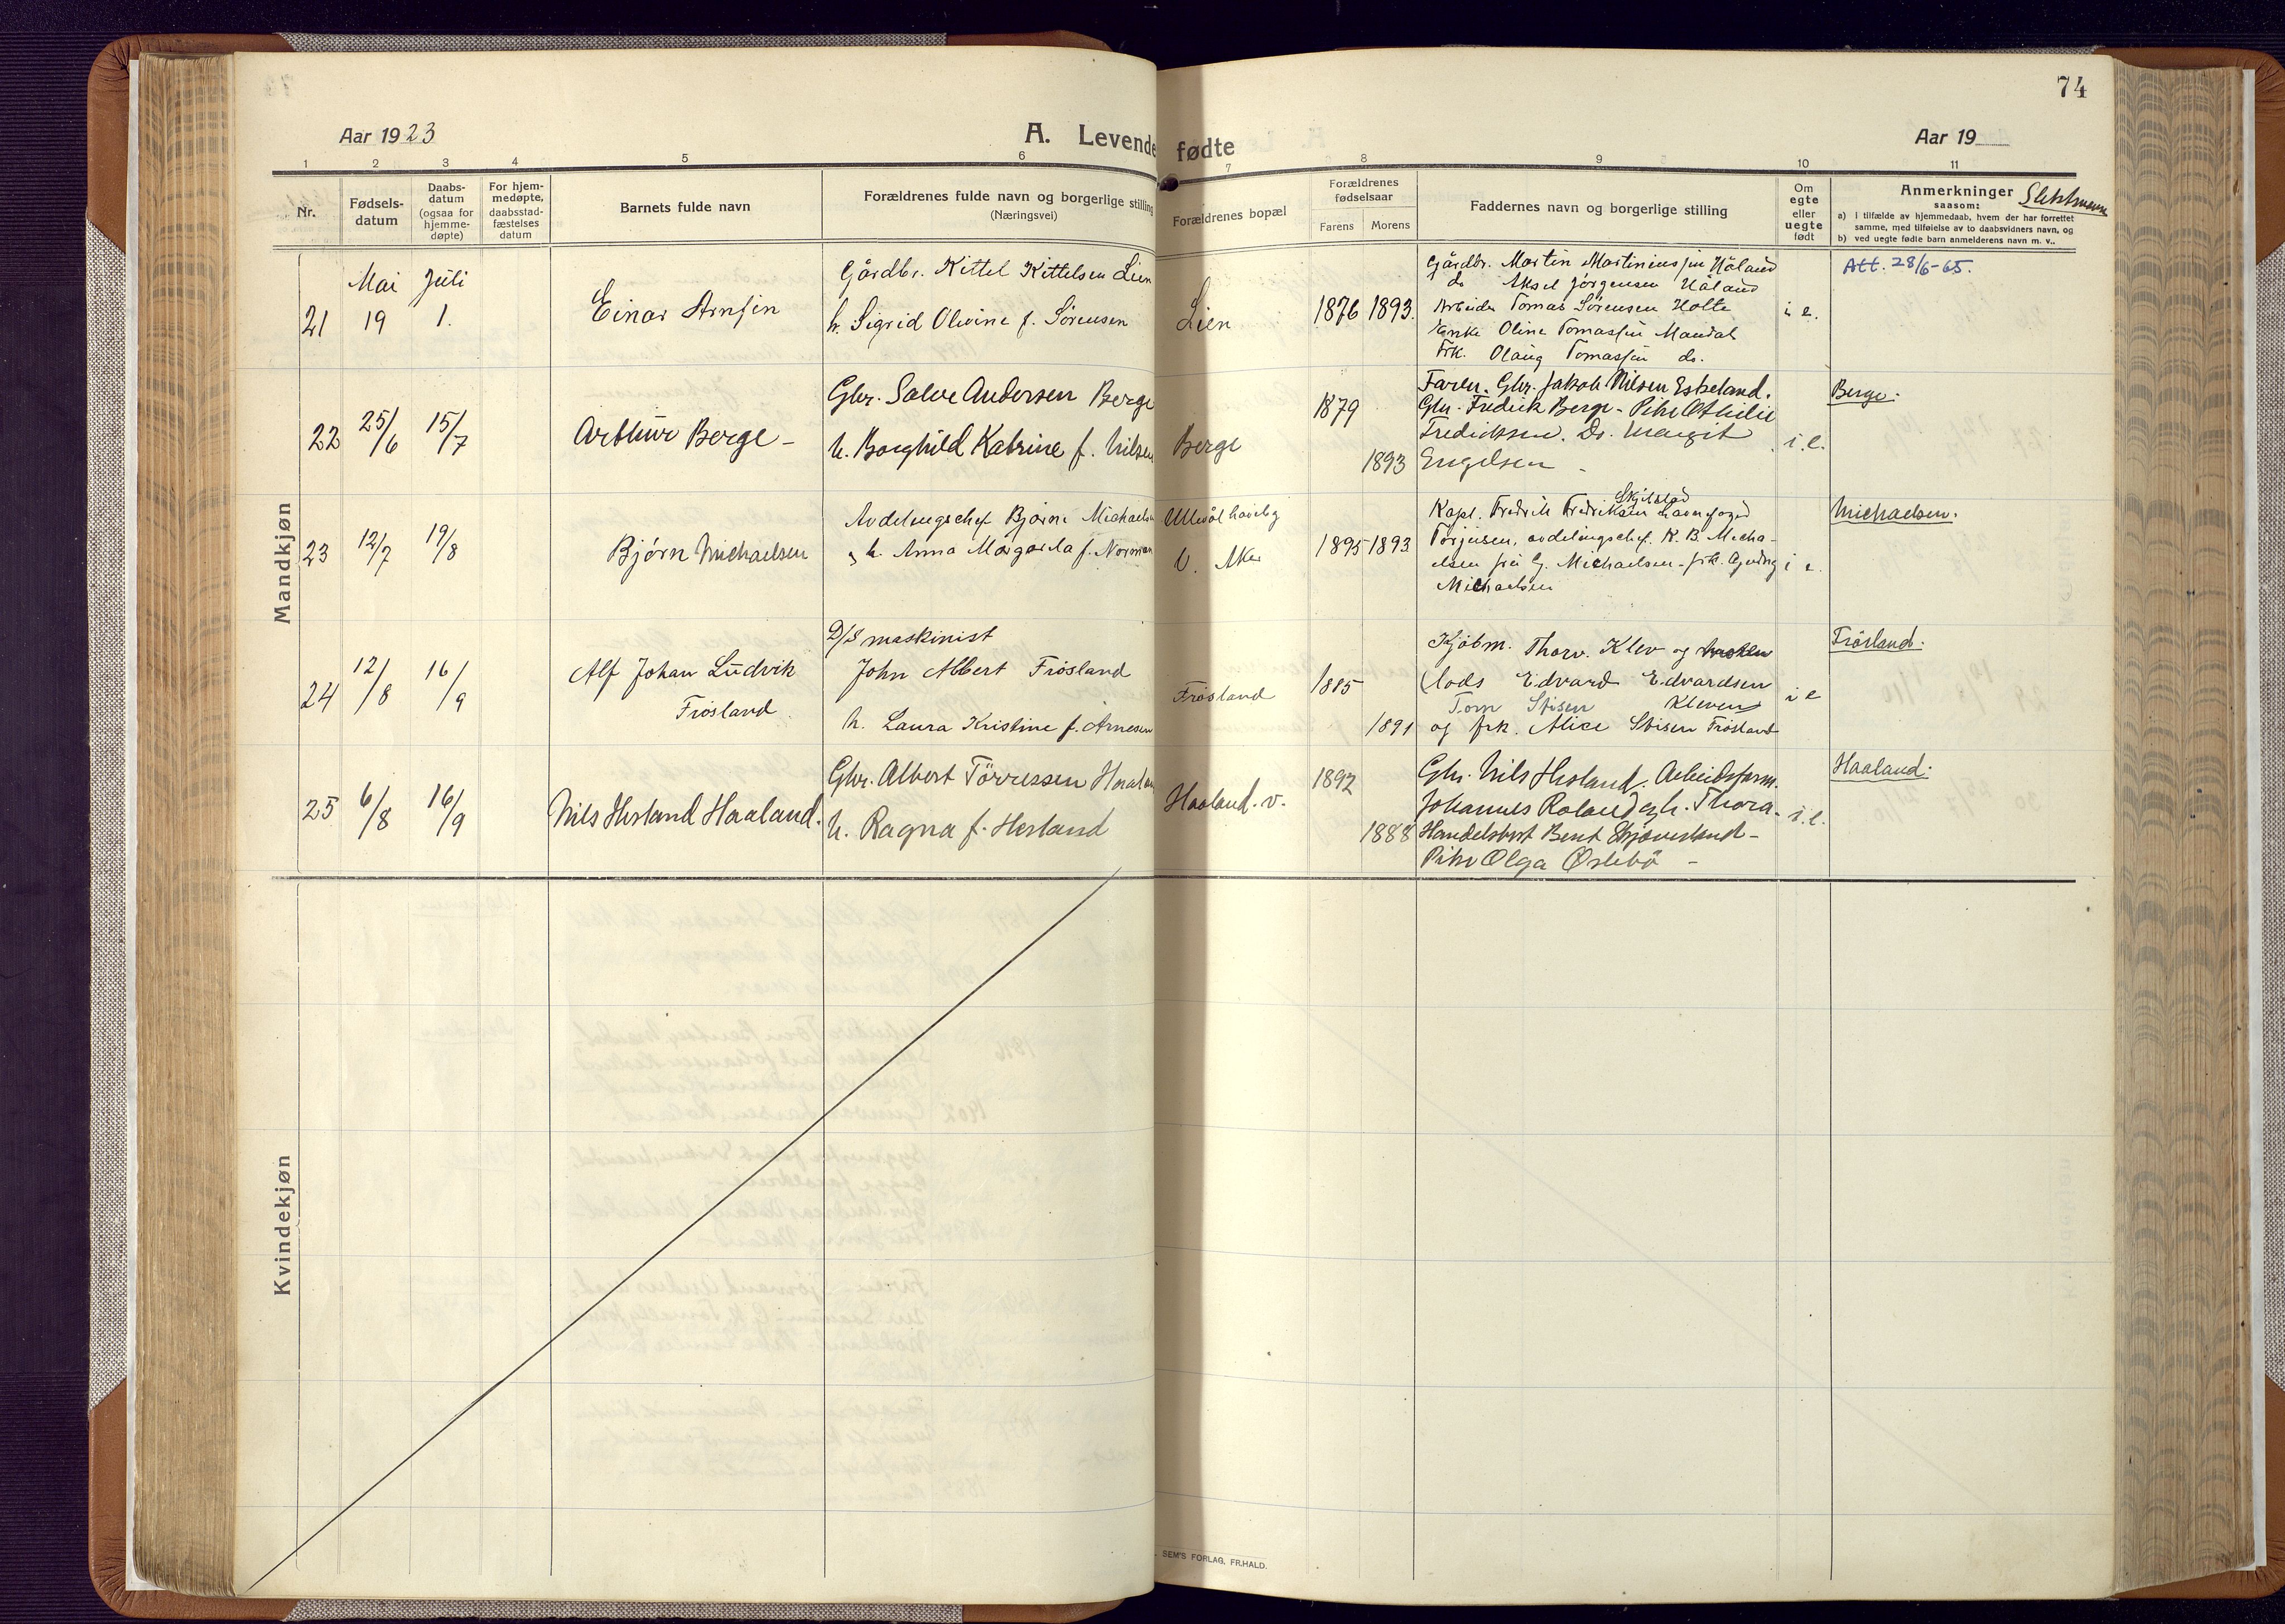 74
Aar 1923
A. Levende fødte
Aar 19
1 2 3 4 5 6 7 8 9 10 11
Nr.
Fødsels-
datum
Daabs-
datum
(ogsaa for
hjemme-
døpte)
For hjem-
medøpte,
daabsstad-
fæstelses
datum
Barnets fulde navn
Forældrenes fulde navn og borgerlige stilling
(Næringsvei)
Forældrenes bopæl
Forældrenes
fødselsaar
Farens Morens
Faddernes navn og borgerlige stilling
Om
egte
eller
uegte
født
Anmerkninger
saasom:
a) i tilfælde av hjemmedaab, hvem der har forrettet
samme, med tilføielse av to daabsvidners navn, og
b) ved uegte fødte barn anmelderens navn m. v..
Mandkjøn
Mai Juli
21 19 1.
Einar Arnsen
Gårdbr. Kittel Kittelsen Lien
h. Sigrid Olivine f. Sørensen
Lien
1876 1893.
Gårdbr. Martin Martiniussen Håland
do Aksel Jørgensen Håland
Arbeider Tomas Sørensen Holte
Enke Oline Tomassen Mandal
Frk. Olaug Tomassen do.
i e.
Att. 28/6-65.
22 25/6 15/7
Arthur Berge -
Gbr. Salve Andersen Berge
h. Borghild Katrine f. Nilsen
Berge
1879
1893
Faren. Gbr. Jakob Nilsen Eskeland.
Gbr. Fredrik Berge - Pike Othilie
Fredriksen. Do. Margit
Engelsen -
i.e.
Berge.
23 12/7 19/8
Bjørn Michaelsen
Avdelingschef Bjarne Michaelsen
h. Anna Margarela f. Norman
Ullevål haveby
V. Aker
1895 1893
Skjelstad
Kapt. Fredrik Fredriksen havnefoged
Torjusen, avdelingschef K. B. Micha-
elsen fru G. Michaelsen - frk.
Michaelsen
i e.
Michaelsen.
24 12/8 16/9
Alf Johan Ludvik
Frøsland
D/S maskinist
John Albert Frøsland
h. Laura Kristine f. Arnesen
Frøsland
1885
1891
Kjøbm. Thorv. Klev og
Lods Edvard Edvardsen
Tom Stisen Kleven
og frk. Alice Stisen Frøsland
i e
Frøsland.
25 6/8 16/9
Nils Herland Haaland.
Gbr. Albert Tørressen Haaland
h. Ragna f. Herland
Haaland. v.
1892
1888
Gbr. Nils Herland. Arbeidsform.
Johannes Roland og h. Thora -
Handelsbest Bent Skjæveland -
Pike Olga Øslebø -
i.e.
Haaland.
Kvindekjøn
SEM'S FORLAG, FR.HALD.